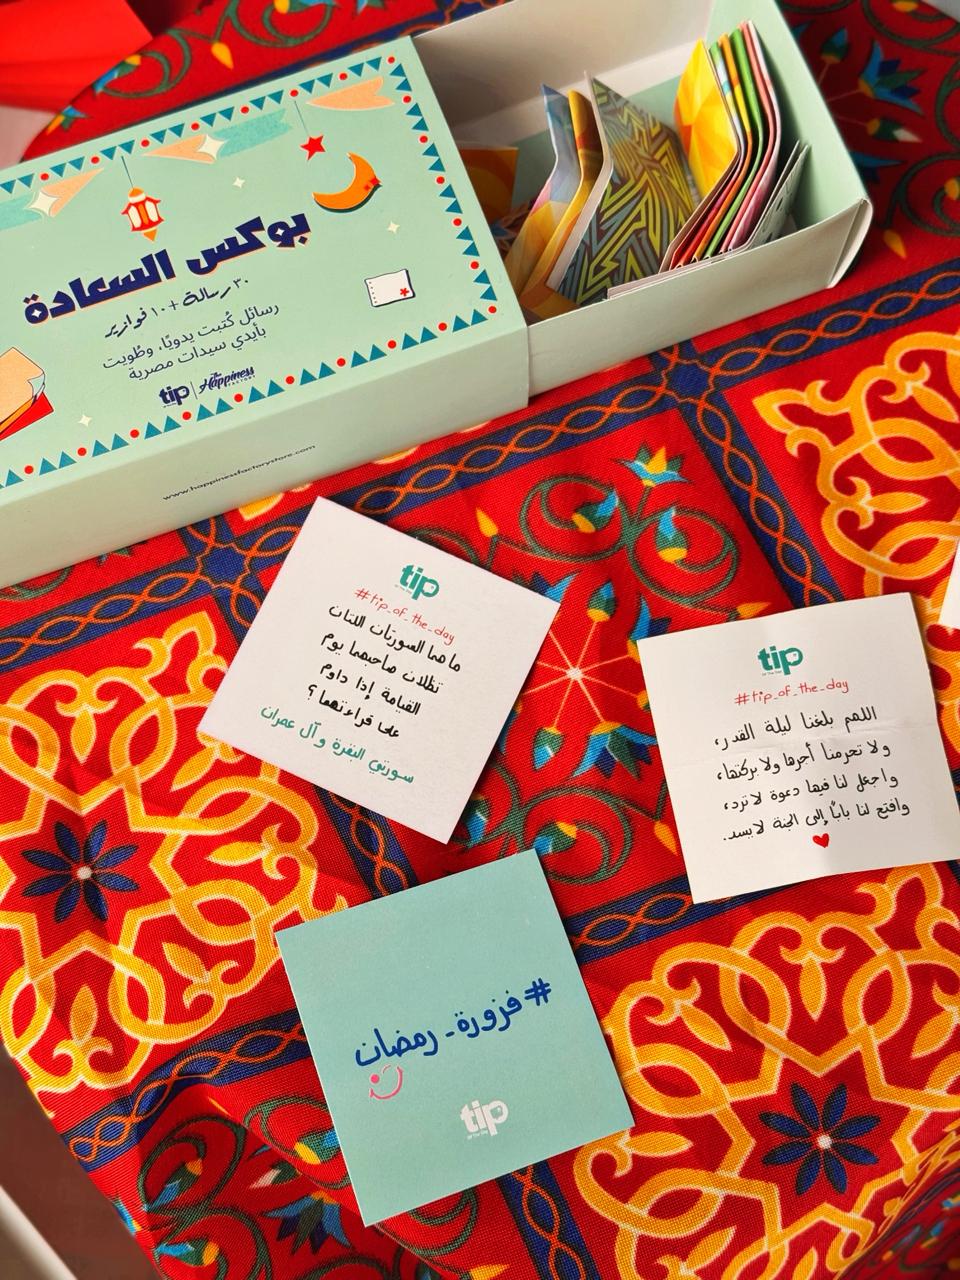 بوكس السعادة
٣٠ رسالة + ١٠ فوازير
رسائل كُتبت يدويًا، وطُويت
بأيدي سيدات مصرية
tip | The Happiness FACTORY
www.happinessfactorystore.com
tip
#tip_of_the_day
ما هما السورتان اللتان
تظلان صاحبهما يوم
القيامة إذا داوم
على قراءتهما ؟
سورتي البقرة و آل عمران
tip
Of The Day
#tip_of_the_day
اللهم بلغنا ليلة القدر،
ولا تحرمنا أجرها ولا بركتها،
واجعل لنا فيها دعوة لا ترد،
وافتح لنا بابًا إلى الجنة لا يسد.
#فزورة_رمضان
tip
Of The Day